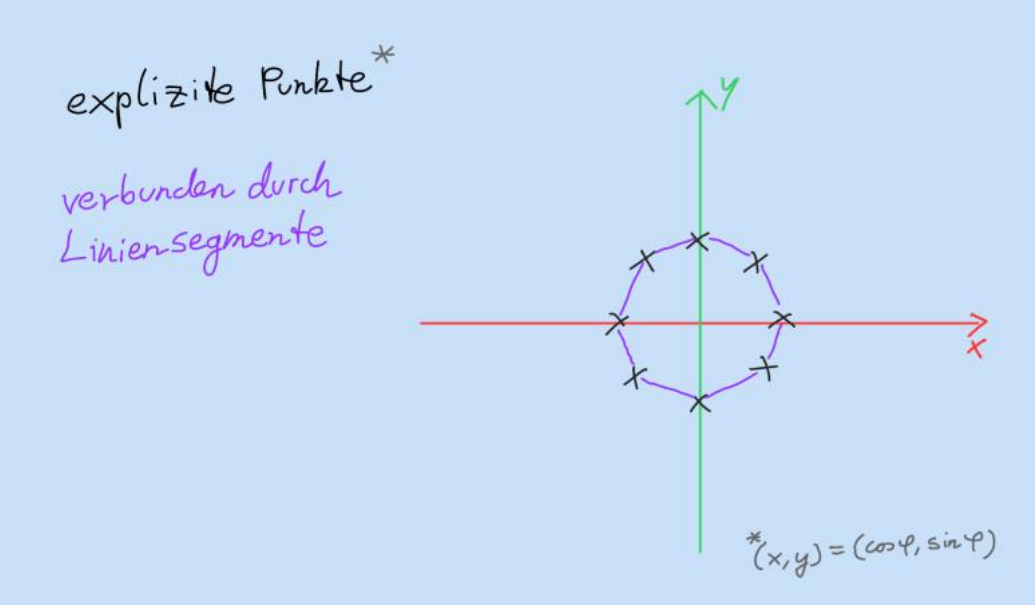 explizite Punkte*
verbunden durch
Liniensegmente
y
x
*(x,y) = (cos φ, sin φ)